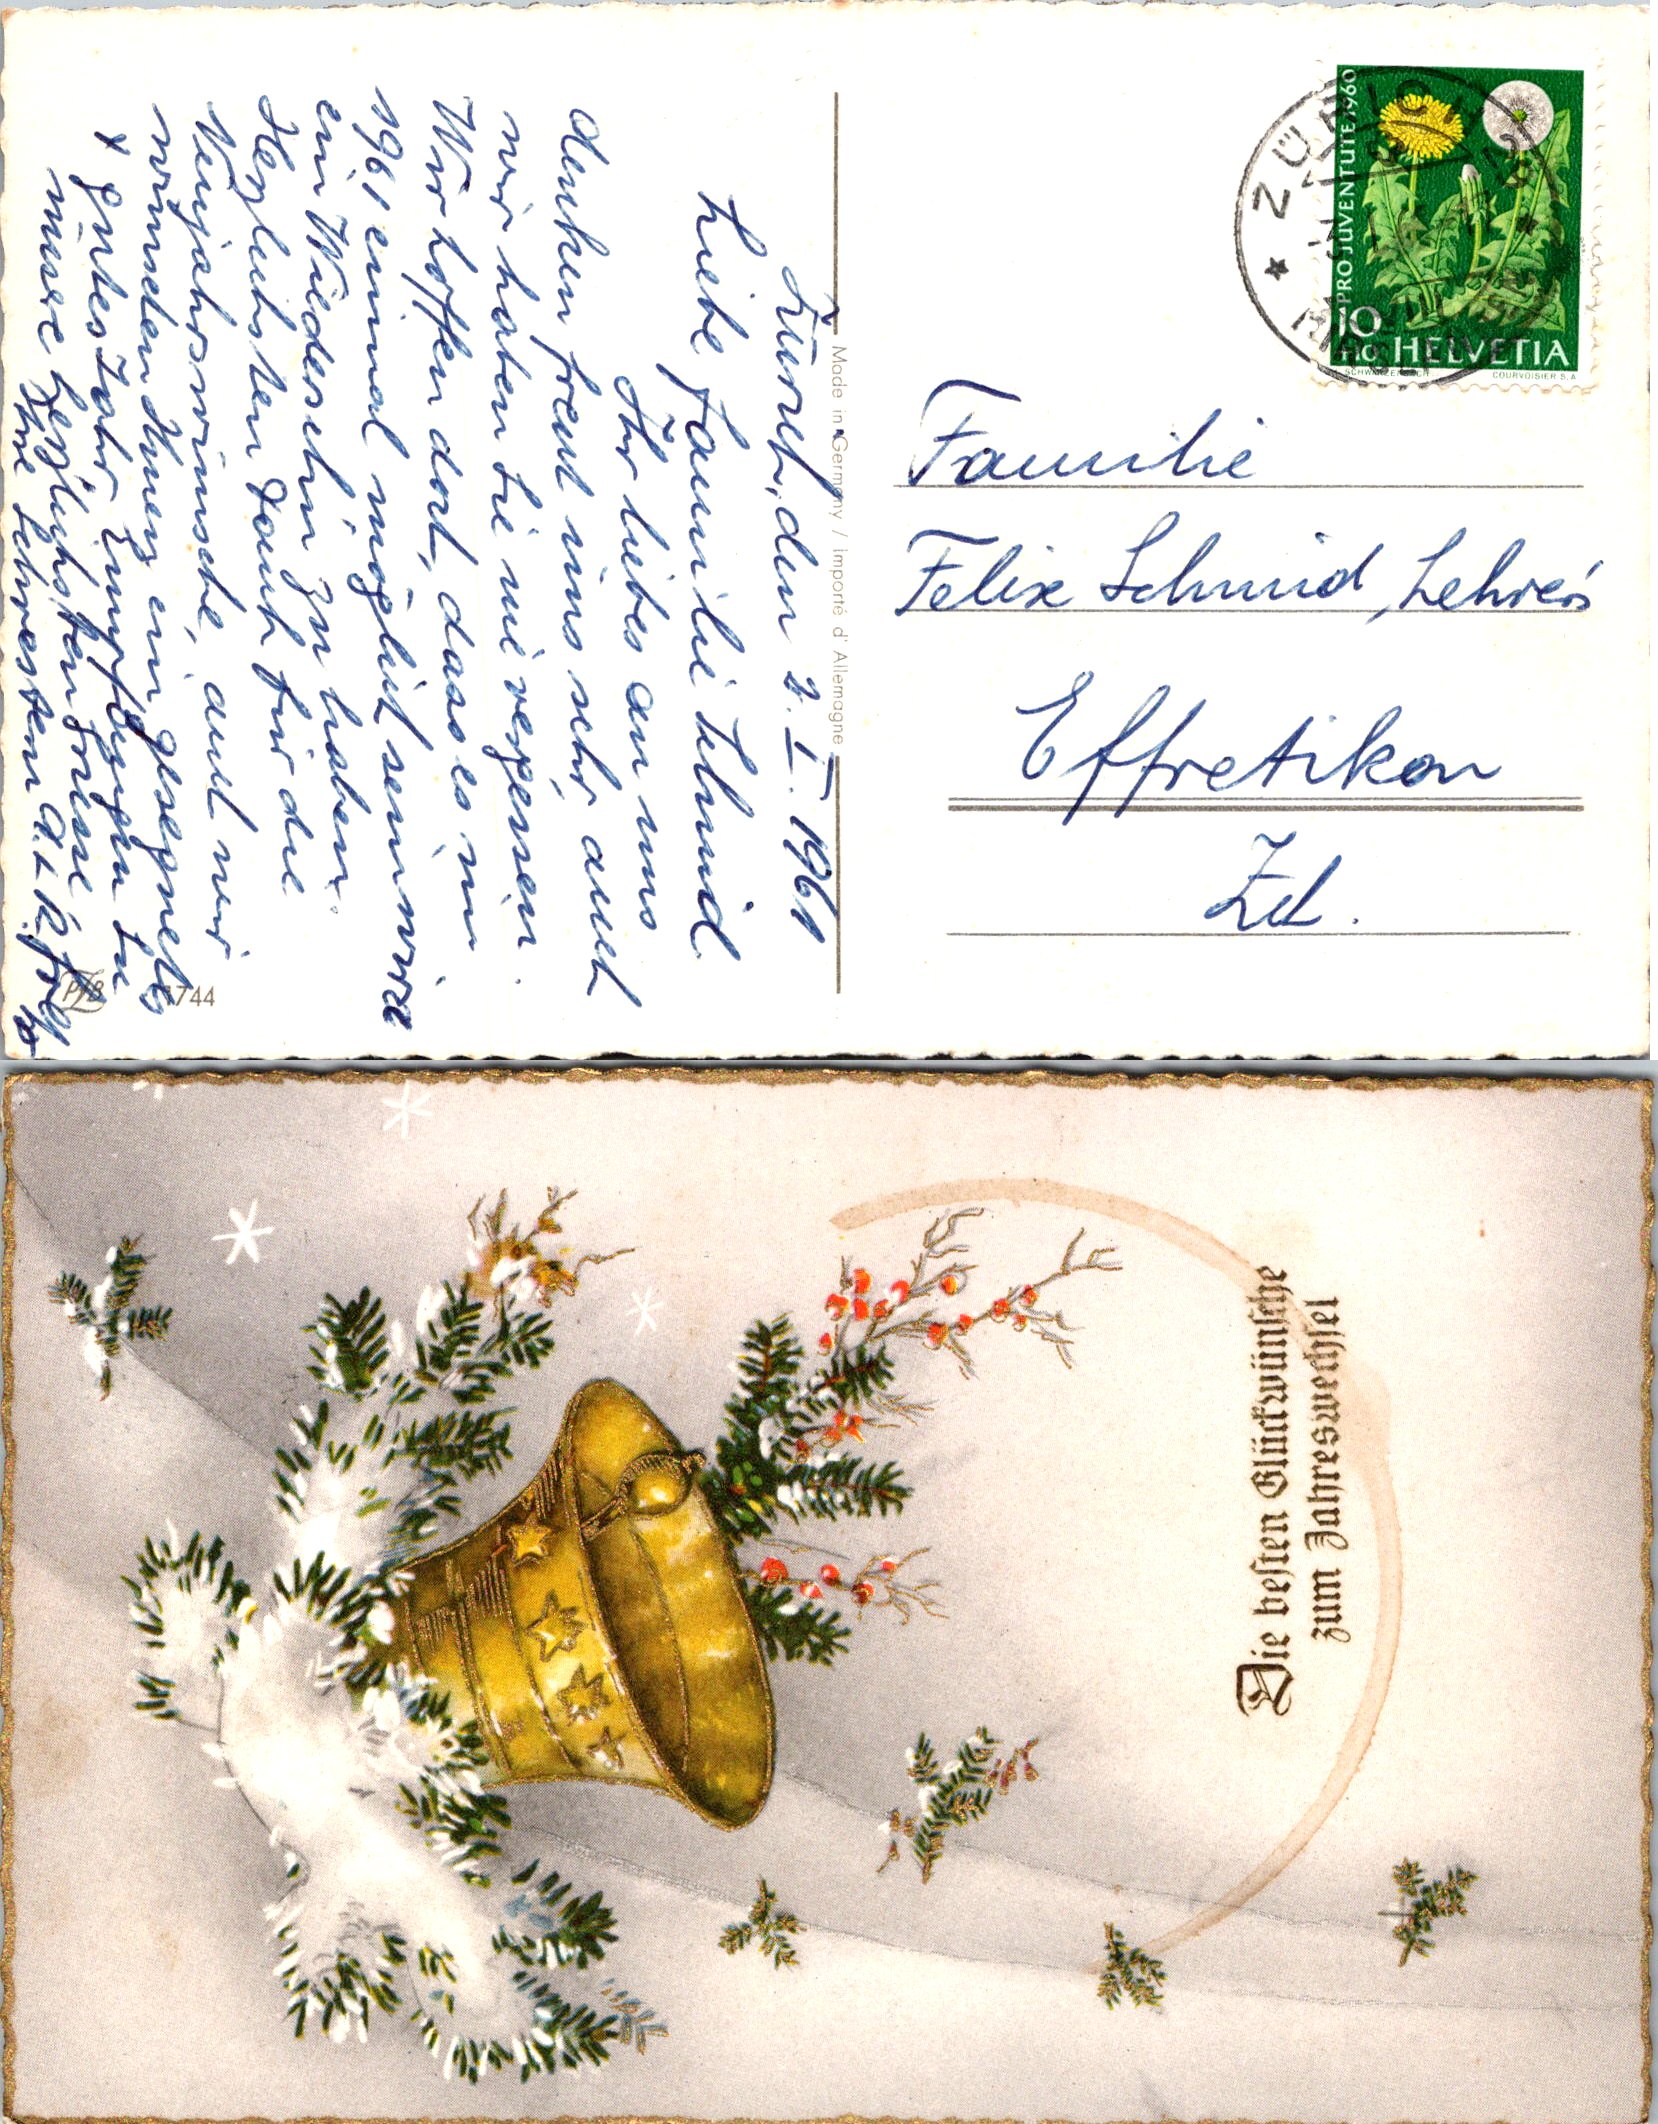 Zürich, den 2. I. 1961
Liebe Familie Schmid
Ihr liebes an uns
denken freut uns sehr, auch
wir haben Sie nie vergessen.
Wir hoffen doch, dass es im
1961 einmal möglich sein wird
ein Wiedersehn zu haben.
Herzlichsten Dank für die
Neujahrswünsche, auch wir
wünschen Ihnen ein gesegnetes
+ gutes Jahr. Empfangen Sie
unsere herzlichsten Grüsse
Ihre Schwestern
Made in Germany / Importé d'Allemagne
PRO JUVENTUTE 1960
10
HELVETIA
COURVOISIER S.A.
ZÜRICH
Familie
Felix Schmid, Lehrer's
Effretikon
Zch.
1744
Die besten Glückwünsche
zum Jahreswechsel